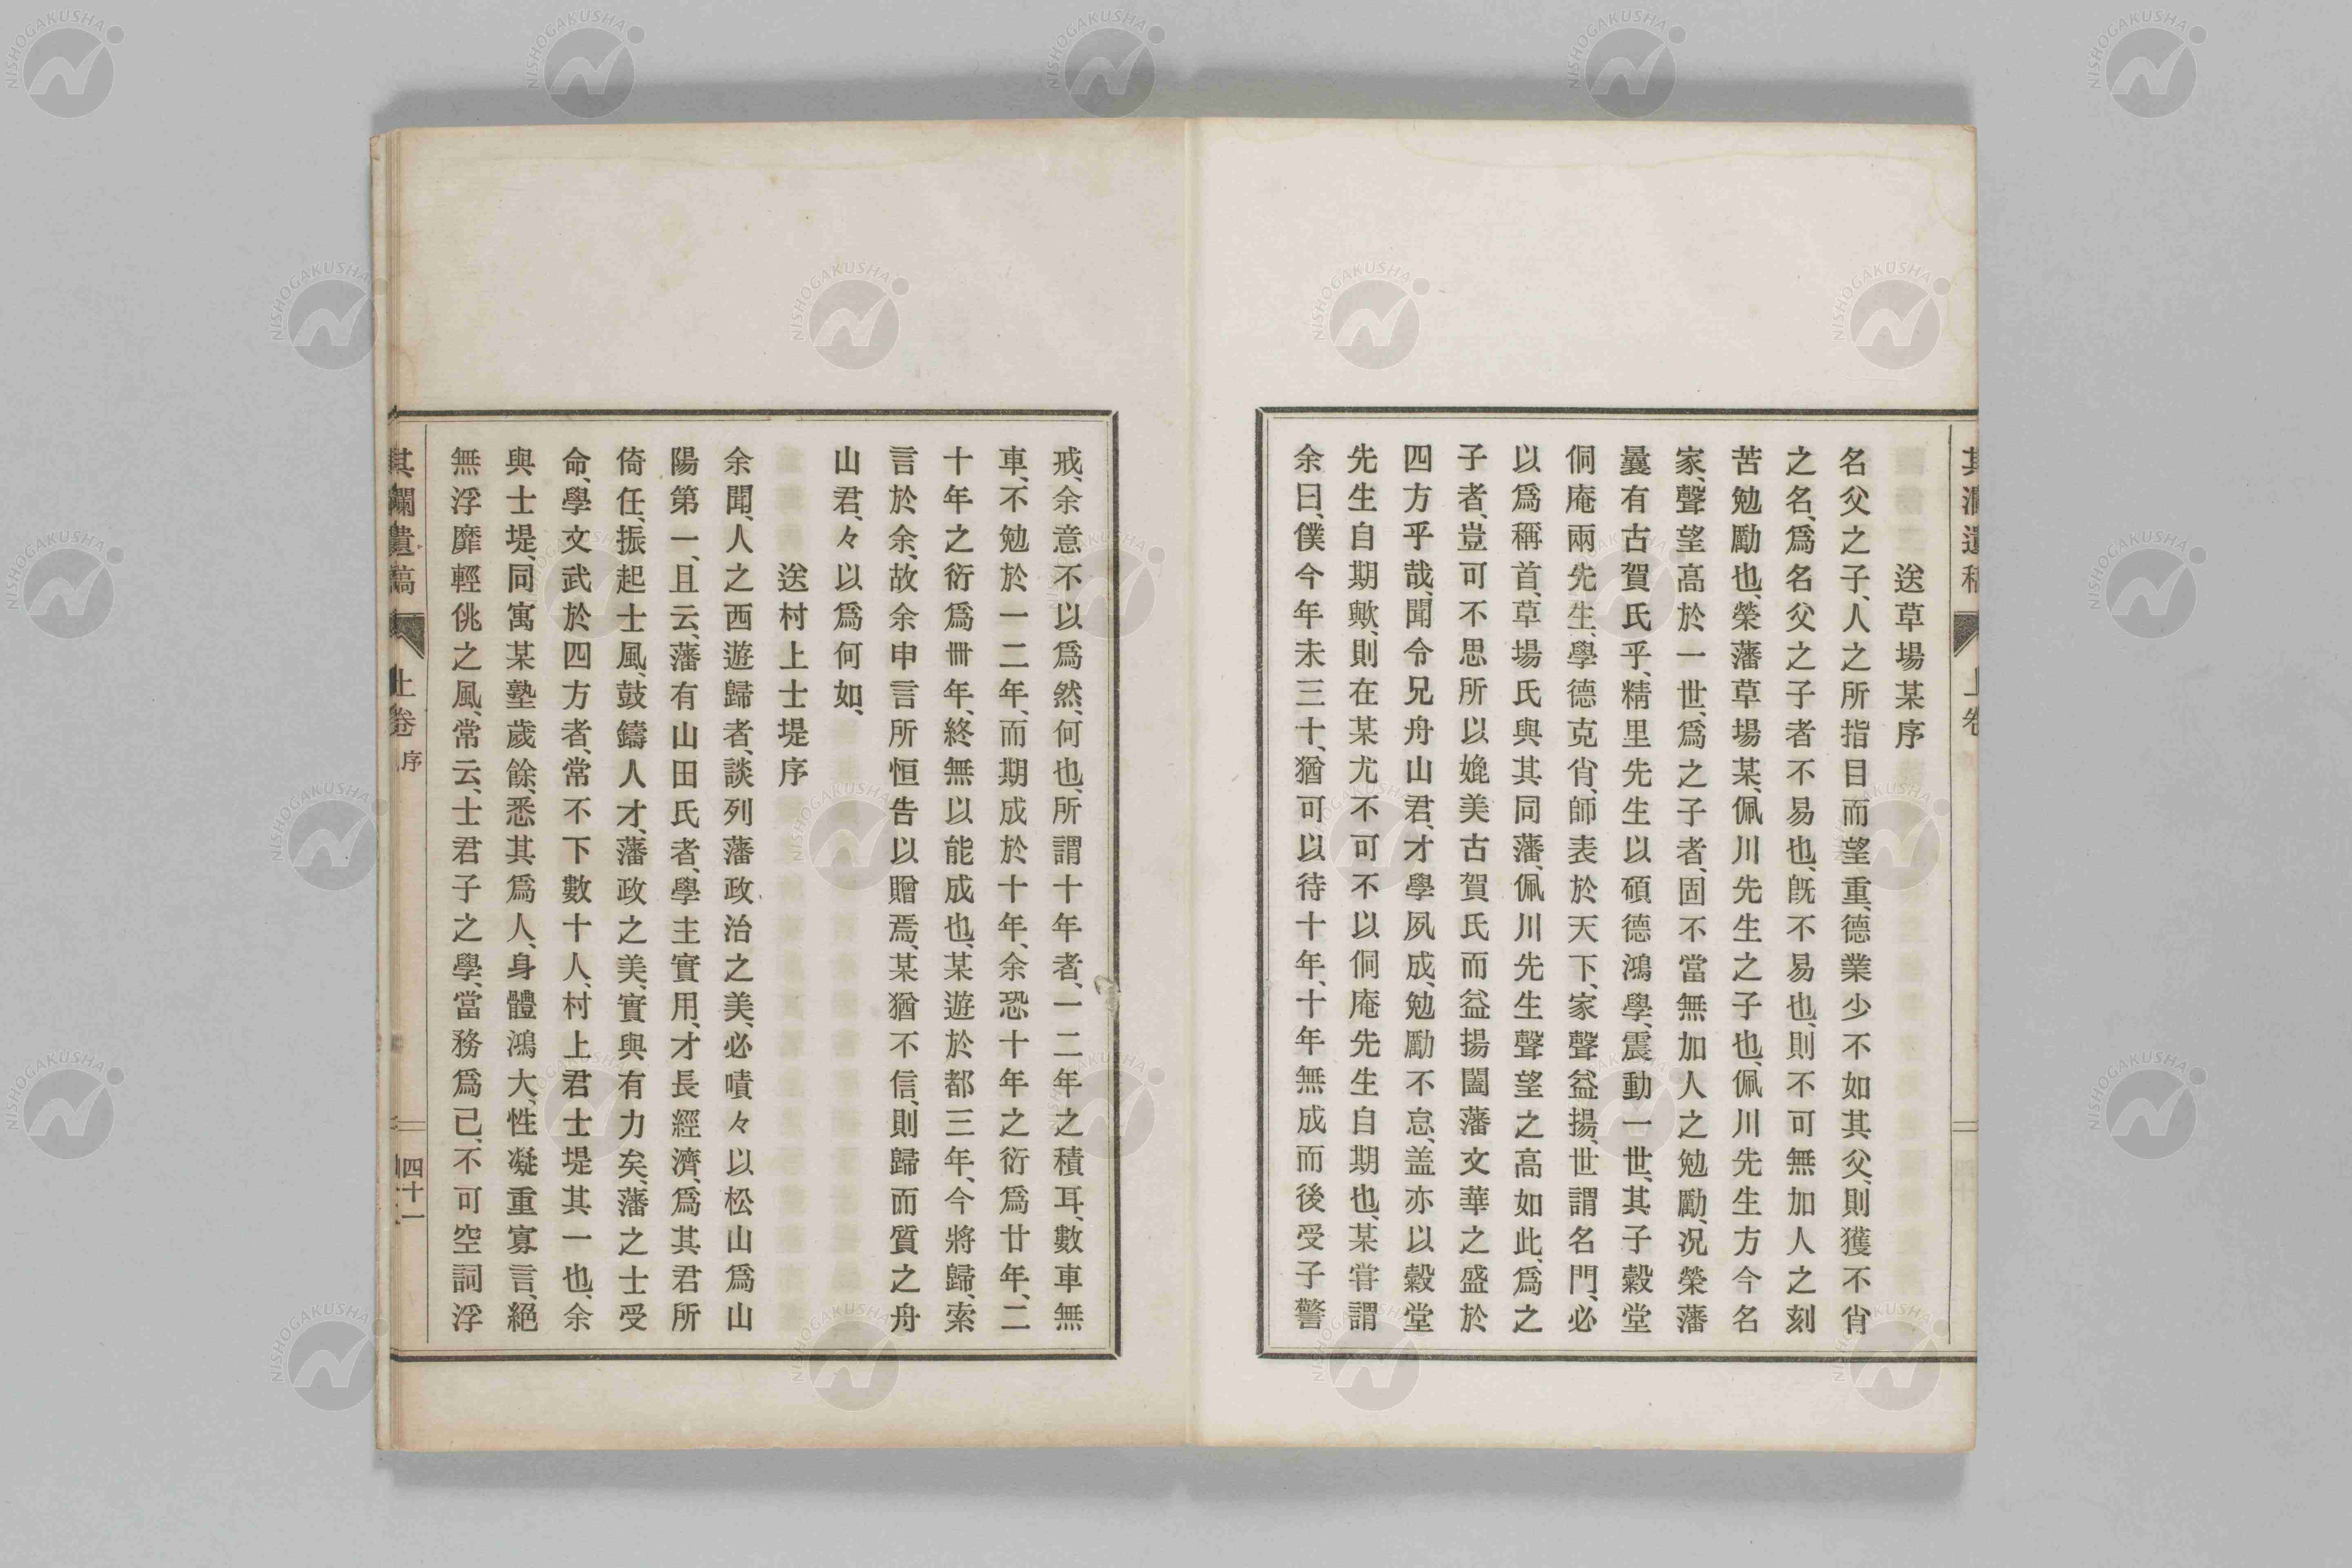 送草場某序
名父之子、人之所指目而望重、德業少不如其父、則獲不肖
之名、爲名父之子者不易也、旣不易也、則不可無加人之刻
苦勉勵也、榮藩草場某、佩川先生之子也、佩川先生方今名
家、聲望高於一世、爲之子者、固不當無加人之勉勵、况榮藩
曩有古賀氏乎、精里先生以碩德鴻學、震動一世、其子穀堂
侗庵兩先生、學德克肖、師表於天下、家聲益揚、世謂名門、必
以爲稱首、草場氏與其同藩、佩川先生聲望之高如此、爲之
子者、豈可不思所以媲美古賀氏而益揚闔藩文華之盛於
四方乎哉、聞令兄舟山君、才學夙成、勉勵不怠、盖亦以穀堂
先生自期歟、則在某尤不可不以侗庵先生自期也、某嘗謂
余曰、僕今年未三十、猶可以待十年、十年無成而後受子警
戒、余意不以爲然、何也、所謂十年者、一二年之積耳、數車無
車、不勉於一二年、而期成於十年、余恐十年之衍爲廿年、二
十年之衍爲卌年、終無以能成也、某遊於都三年、今將歸、索
言於余、故余申言所恒告以贈焉、某猶不信、則歸而質之舟
山君、々以爲何如、
送村上士堤序
余聞、人之西遊歸者、談列藩政治之美、必嘖々以松山爲山
陽第一、且云、藩有山田氏者、學主實用、才長經濟、爲其君所
倚任、振起士風、鼓鑄人才、藩政之美、實與有力矣、藩之士受
命、學文武於四方者、常不下數十人、村上君士堤其一也、余
與士堤、同寓某塾歲餘、悉其爲人、身體鴻大、性凝重寡言、絕
無浮靡輕佻之風、常云、士君子之學、當務爲己、不可空詞浮
其瀾遺稿 上卷 序 四十一